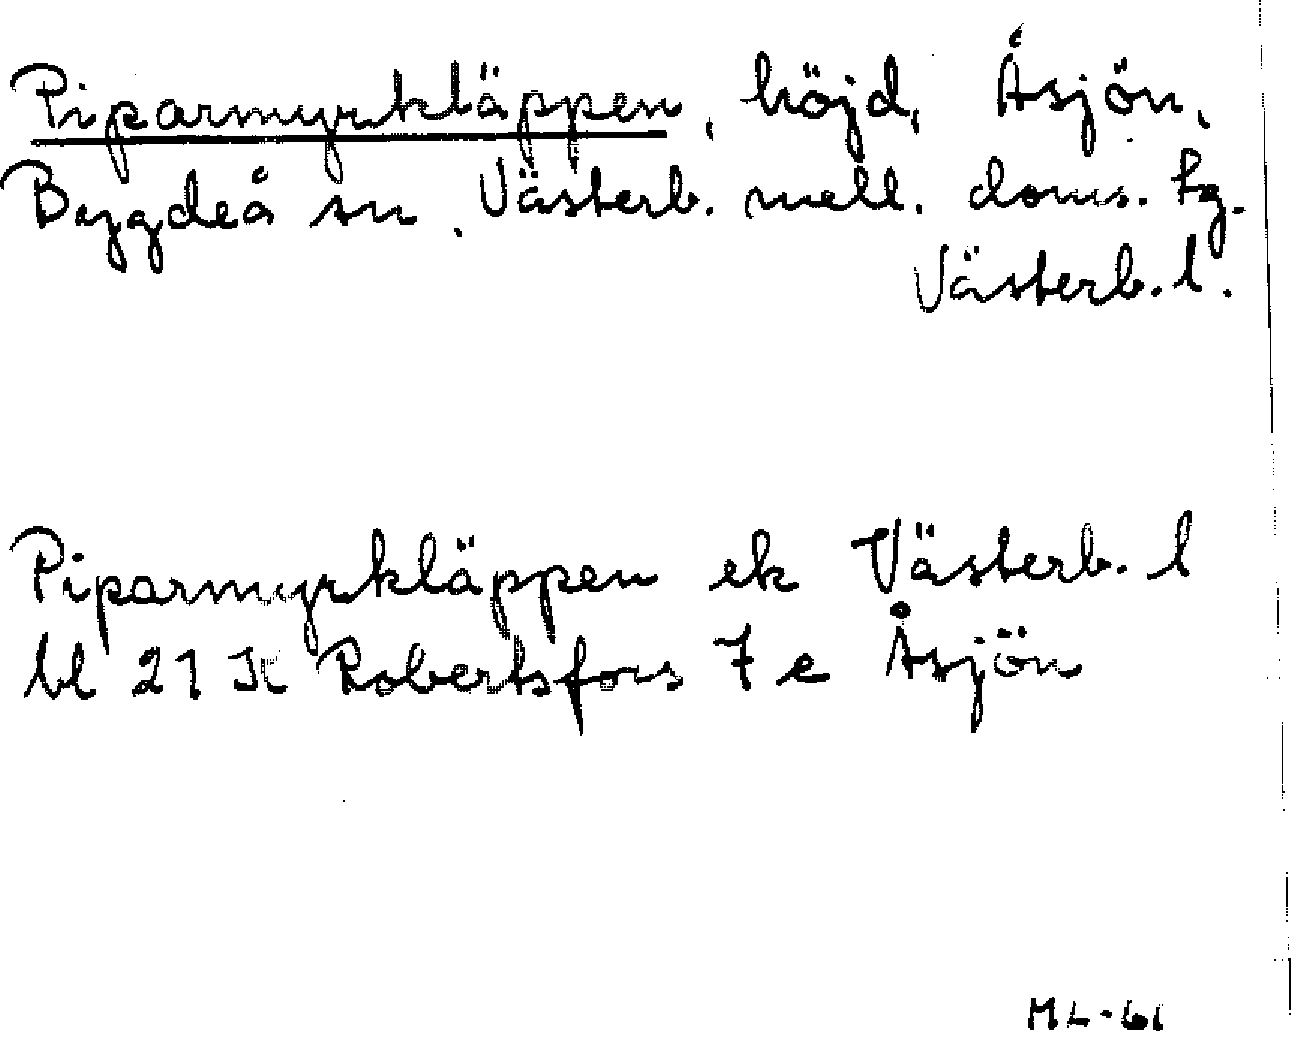 Piparmyrkläppen, höjd, Åsjön,
Bygdeå sn, Västerb. mell. doms. tg.
Västerb. l.
Piparmyrkläppen ek Västerb. l
bl 21 K Robertsfors 7 e Åsjön
ML-61